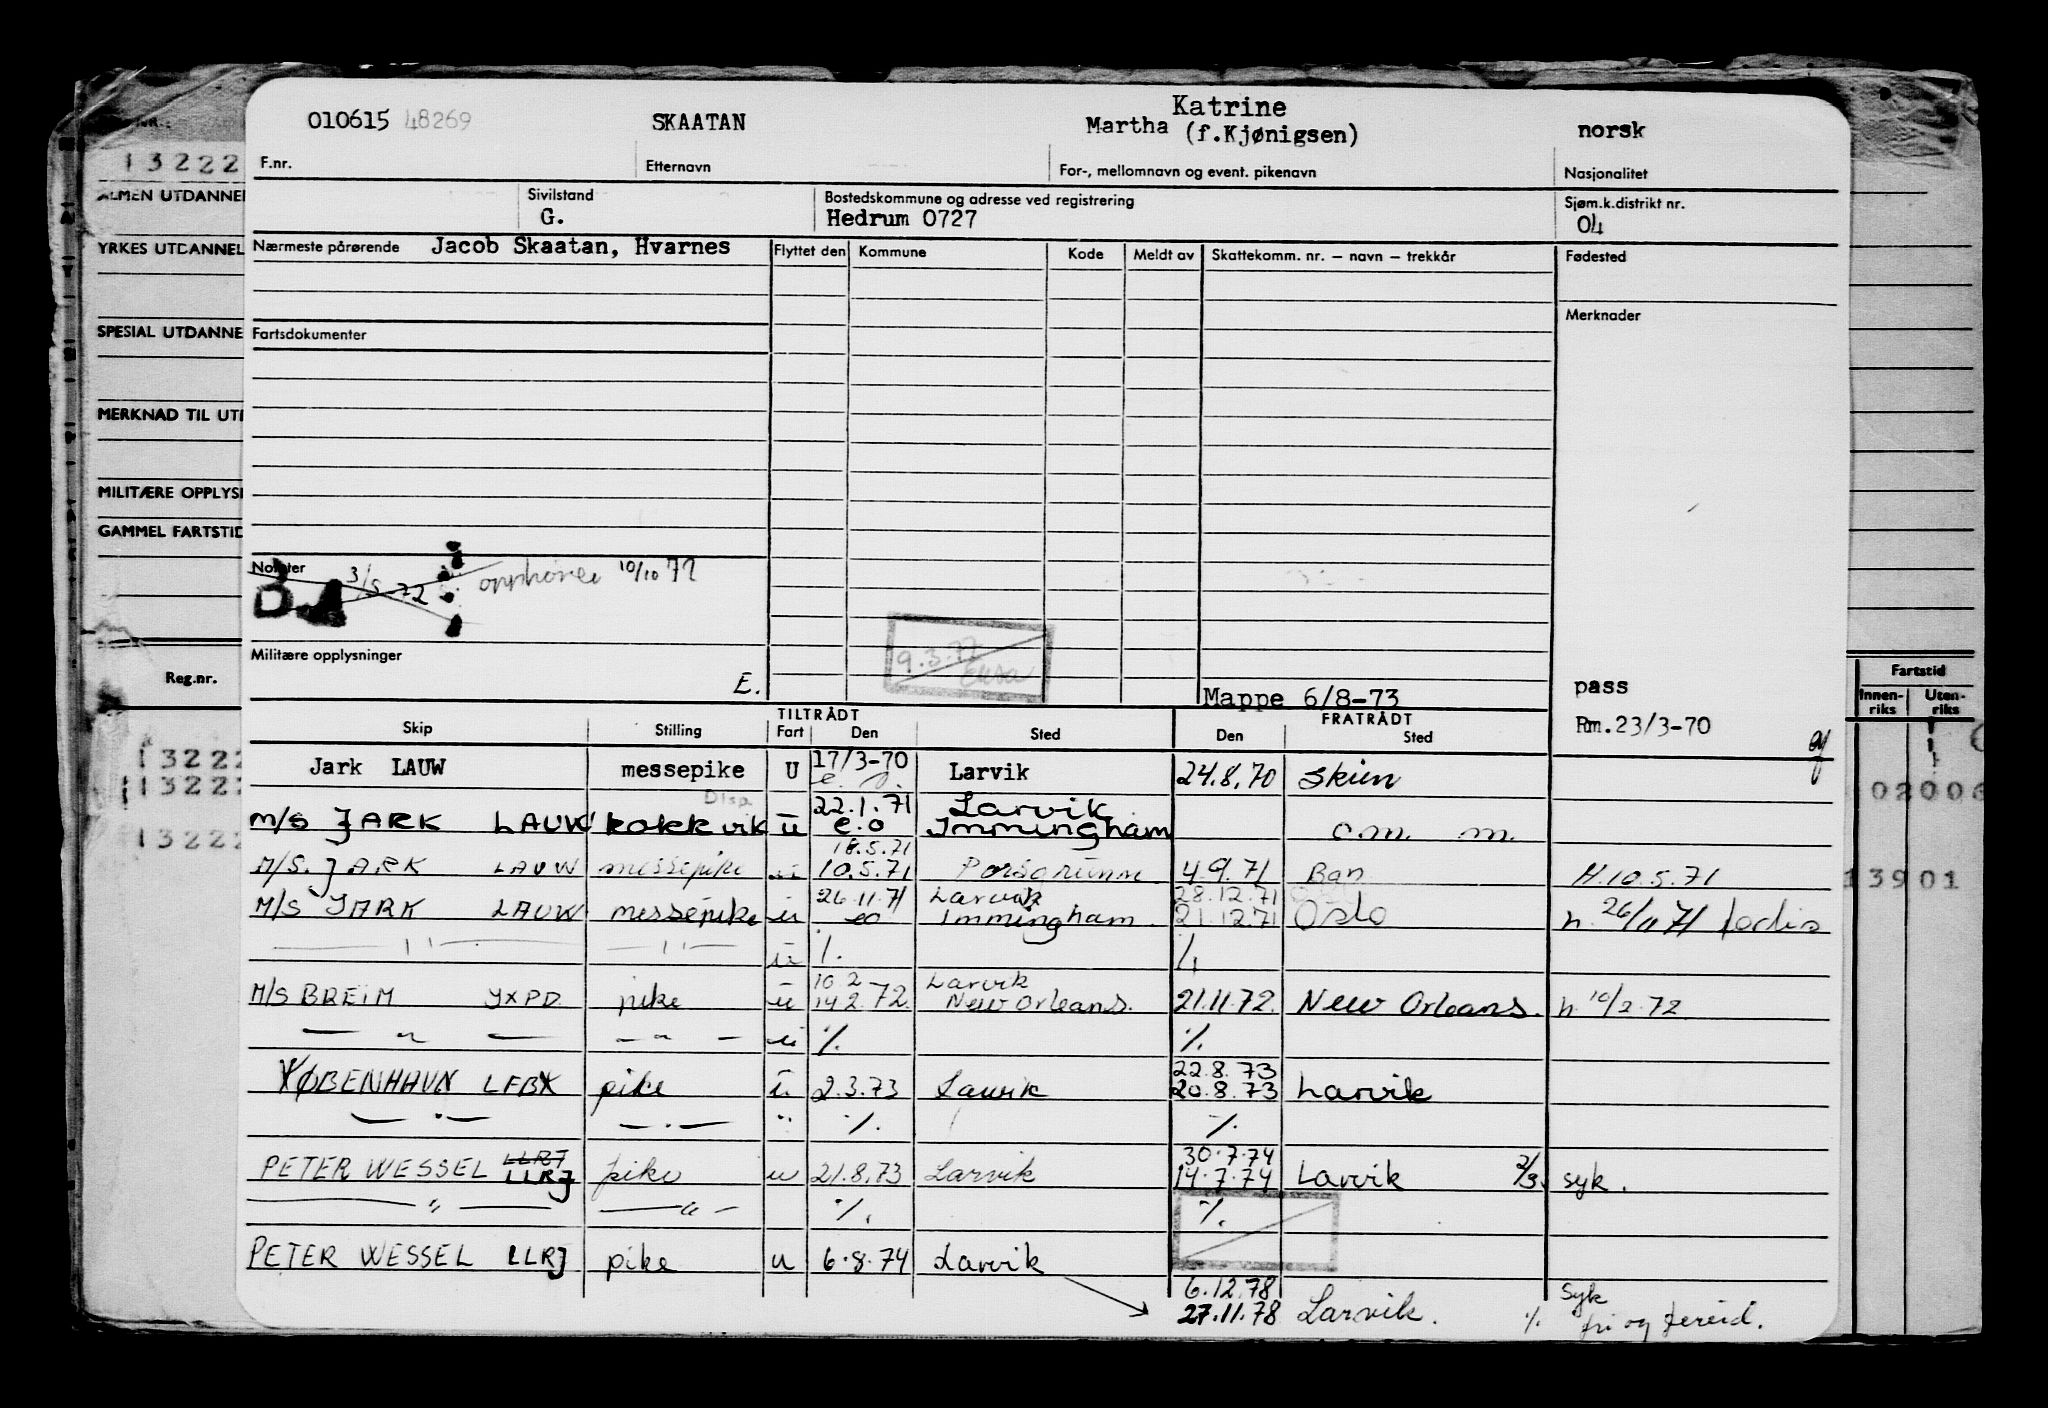 010615 48269 SKAATAN Katrine
Martha (f.Kjønigsen) norsk
F.nr. Etternavn For-, mellomnavn og event. pikenavn Nasjonalitet
Sivilstand Bostedskommune og adresse ved registrering Sjøm.k.distrikt nr.
G. Hedrum 0727 04
Nærmeste pårørende Jacob Skaatan, Hvarnes Flyttet den Kommune Kode Meldt av Skattekomm. nr. – navn – trekkår Fødested
Merknader
Fartsdokumenter
Noteter 3/5-72 opphører 10/10 72
9.3.77
Militære opplysninger
E.
Mappe 6/8-73
pass
Rm.23/3-70
TILTRÅDT FRATRÅDT
Skip Stilling Fart Den Sted Den Sted
Jark LAUW messepike U 17/3-70 Larvik 24.8.70 Skien
Disp.
M/S JARK LAUW kokkvik u 22.1.71 Larvik
e.o Immingham o.m. m.
18.5.71
M/S. JARK LAUW messepike u 10.5.71 Porsgrunn 4.9.71 Ban H.10.5.71
26.11.71 Larvik 28.12.71
M/S JARK LAUW messepike u eo Immingham. 21.12.71 Oslo h. 26/11 71
— " — — " — u %. %.
10 2 Larvik
M/S BREIM YXPD pike u 14 2.72. New Orleans. 21.11.72. New Orleans. h. 10/2.72.
— " — — " — u %. %.
22.8.73
KØBENHAVN LFBX pike u 2.3.73 Larvik 20.8.73 Larvik
— " — — " — " %. %.
LLRJ 30.7.74
PETER WESSEL LLRJ pike u 21.8.73 Larvik 14.7.74 Larvik 2/3. syk.
— " — — " — %. %.
PETER WESSEL LLRJ pike u 6.8.74 Larvik
6.12.78 Syk
27.11.78 Larvik. %. fri og fereid.
13222
ALMEN UTDANNEL
YRKES UTDANNEL
SPESIAL UTDANNE
MERKNAD TIL UT
MILITÆRE OPPLYS
GAMMEL FARTSTID
Reg.nr.
13222
13222
13222
Fartstid
Innen-
riks
Uten-
riks
02006
13901